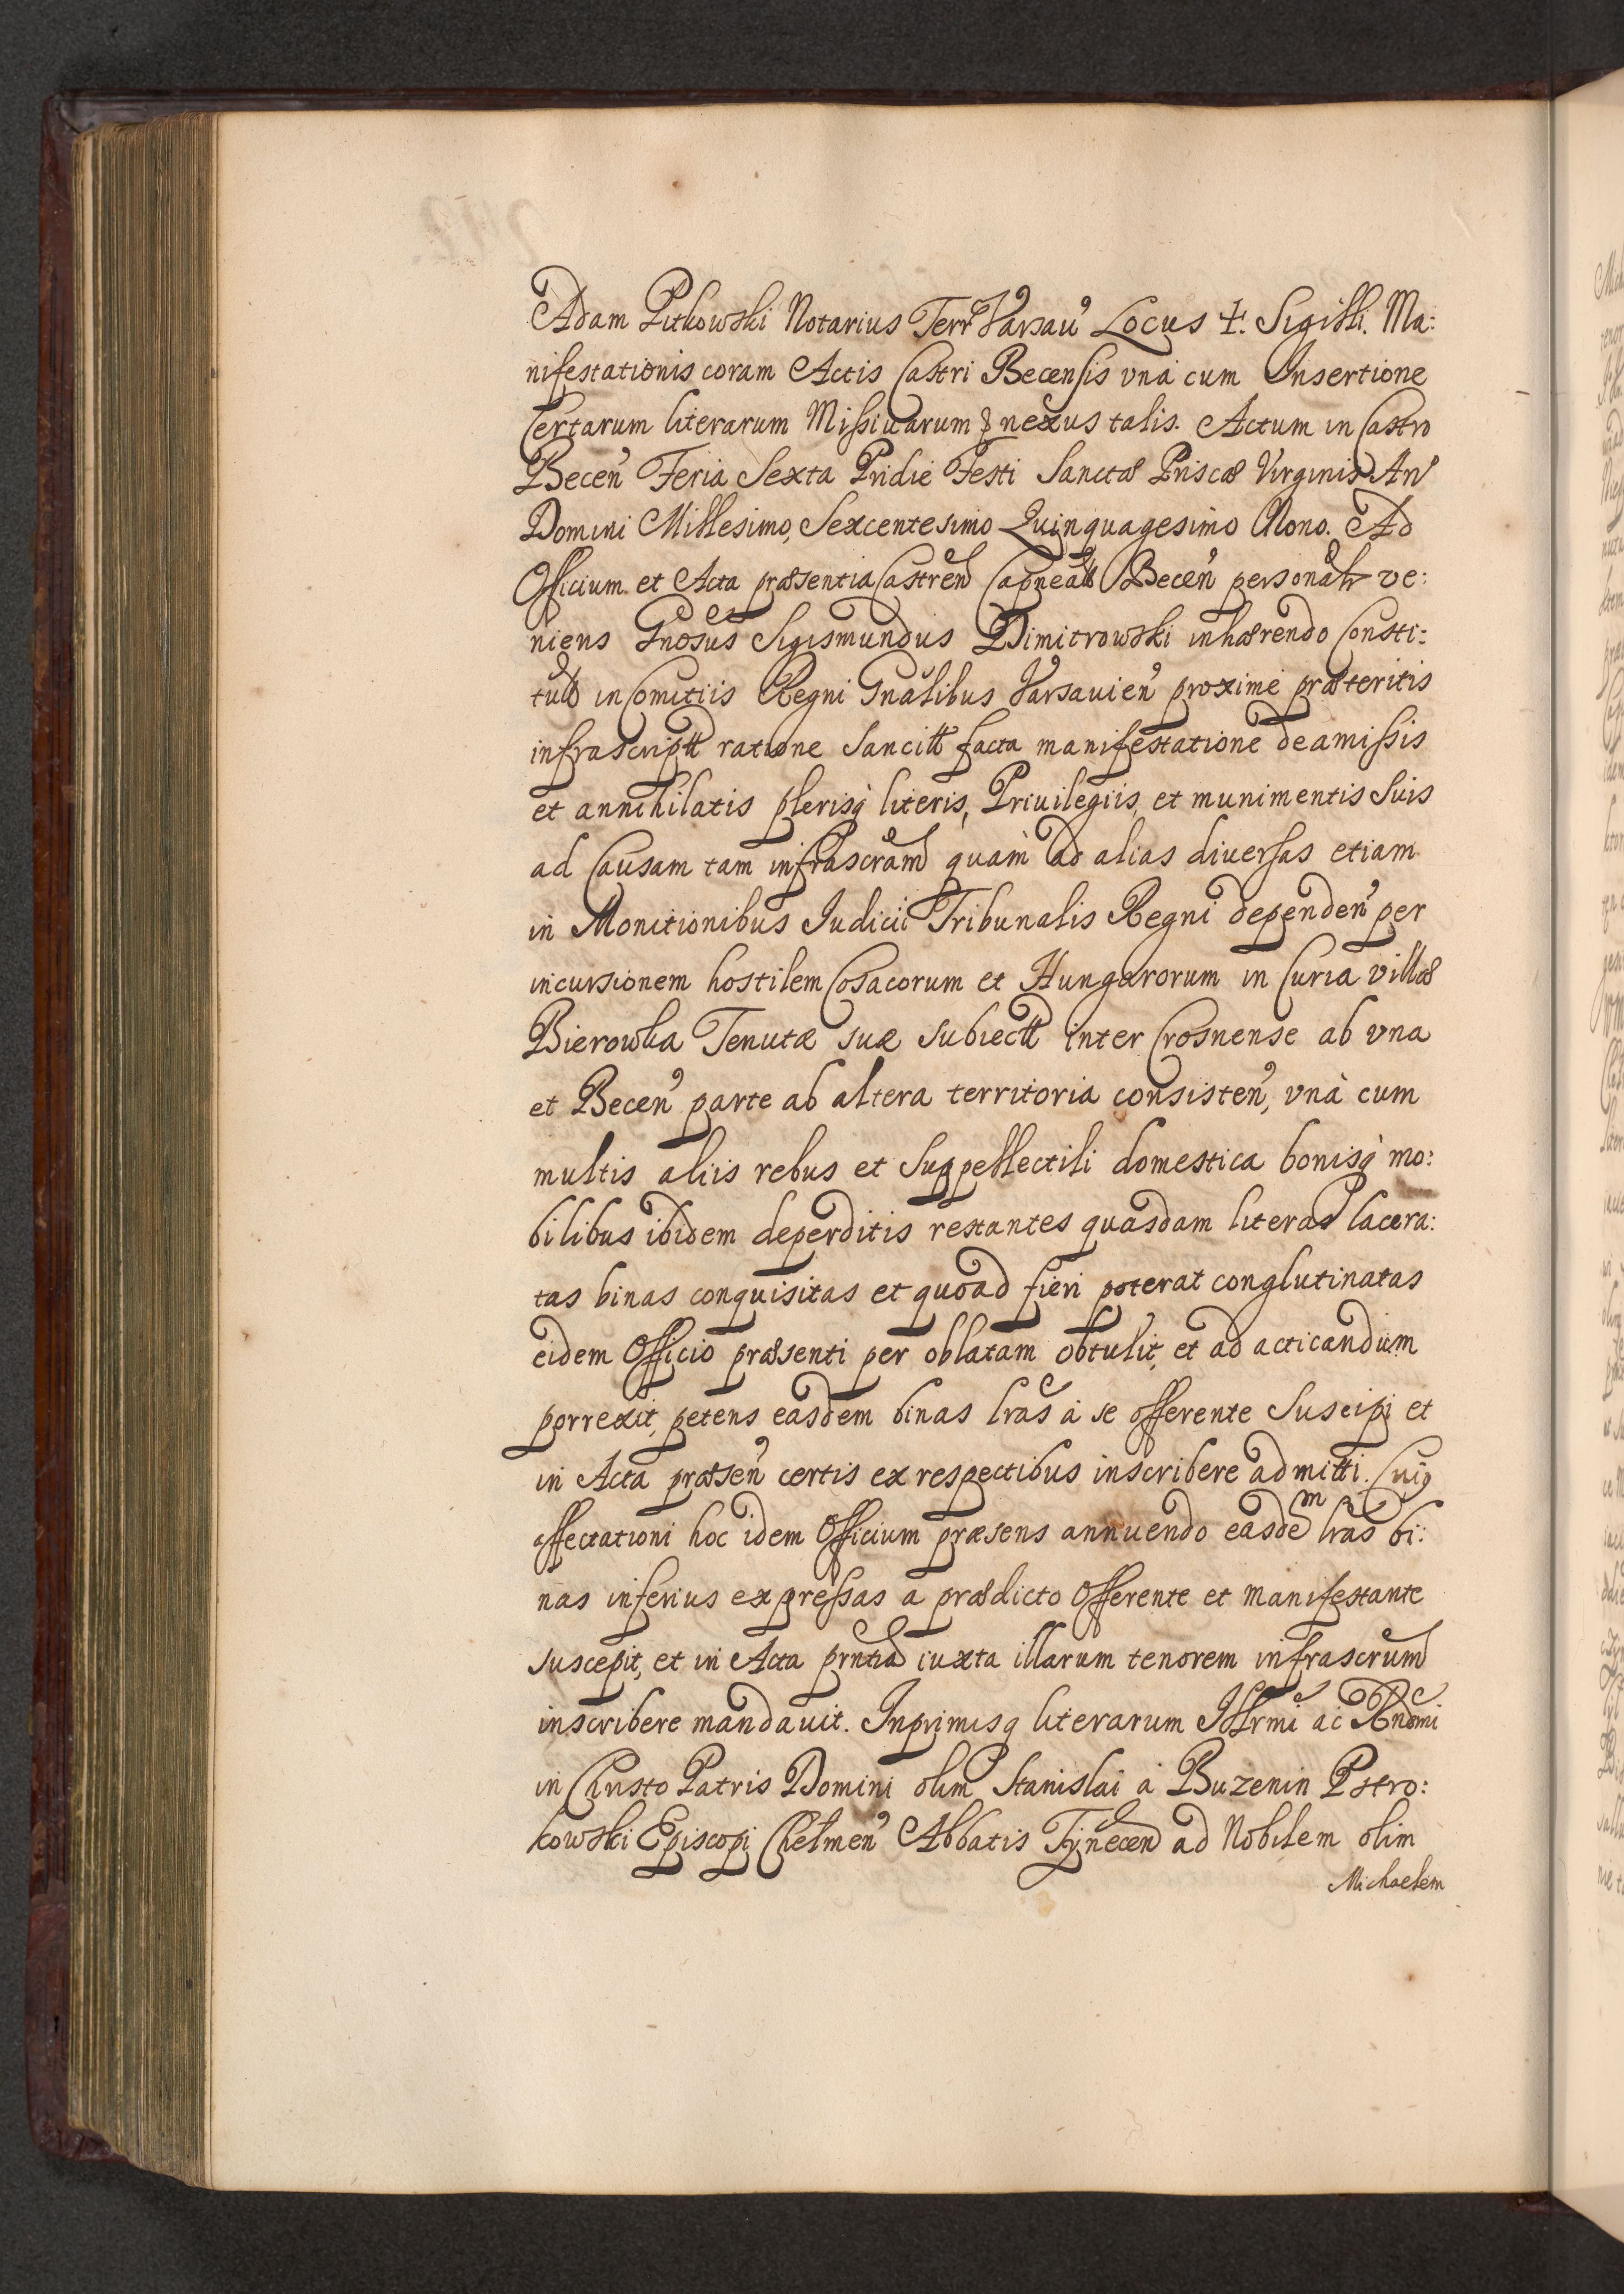 Adam Pitkowski Notarius Terr Varsau Locus ✝. Sigilli. Ma:
nifestationis coram Actis Castri Becensis vnà cum Insertione
Certarum literarum Missiuarum & nexus talis. Actum in Castro
Becen Feria Sexta Pridie Festi Sanctæ Priscæ Virginis An
Domini Millesimo, Sexcentesimo Quinquagesimo Nono. Ad
Officium et Acta præsentia Castren Capneal Becen personalr ve:
niens Gnosus Sigismundus Dimitrowski inhærendo Consti:
tu͠o in Comitiis Regni Gnalibus Varsauien proxime præteritis
infrascriptt ratione Sancitt facta manifestatione de amissis
et annihilatis plerisq literis, Priuilegiis, et munimentis Suis
ad Causam tam infrascram quàm ad alias diuersas etiam
in Monitionibus Iudicii Tribunalis Regni dependen per
incursionem hostilem Cosacorum et Hungarorum in Curia villæ
Bierowka Tenutæ suæ subiectt inter Crosnense ab vna
et Becen parte ab altera territoria consisten, vnà cum
multis aliis rebus et Suppellectili domestica bonisq mo:
bilibus ibidem deperditis restantes quasdam literas lacera:
tas binas conquisitas et quoad fieri poterat conglutinatas
eidem Officio præsenti per oblatam obtulit, et ad acticandum
porrexit, petens easdem binas lras à se offerente Suscipi et
in Acta præsen certis ex respectibus inscribere admitti. Cuiq
affectationi hoc idem Officium præsens annuendo easdem lras bi:
nas inferius expressas a prædicto Offerente et manifestante
suscepit, et in Acta prntia iuxta illarum tenorem infrascrum
inscribere mandauit. Inprimisq literarum Illrmi ac Rndmi
in Christo Patris Domini olim Stanislai à Buzenin Pstro:
kowski Episcopi Chelmen Abbatis Tynecen ad Nobilem olim
Michaelem